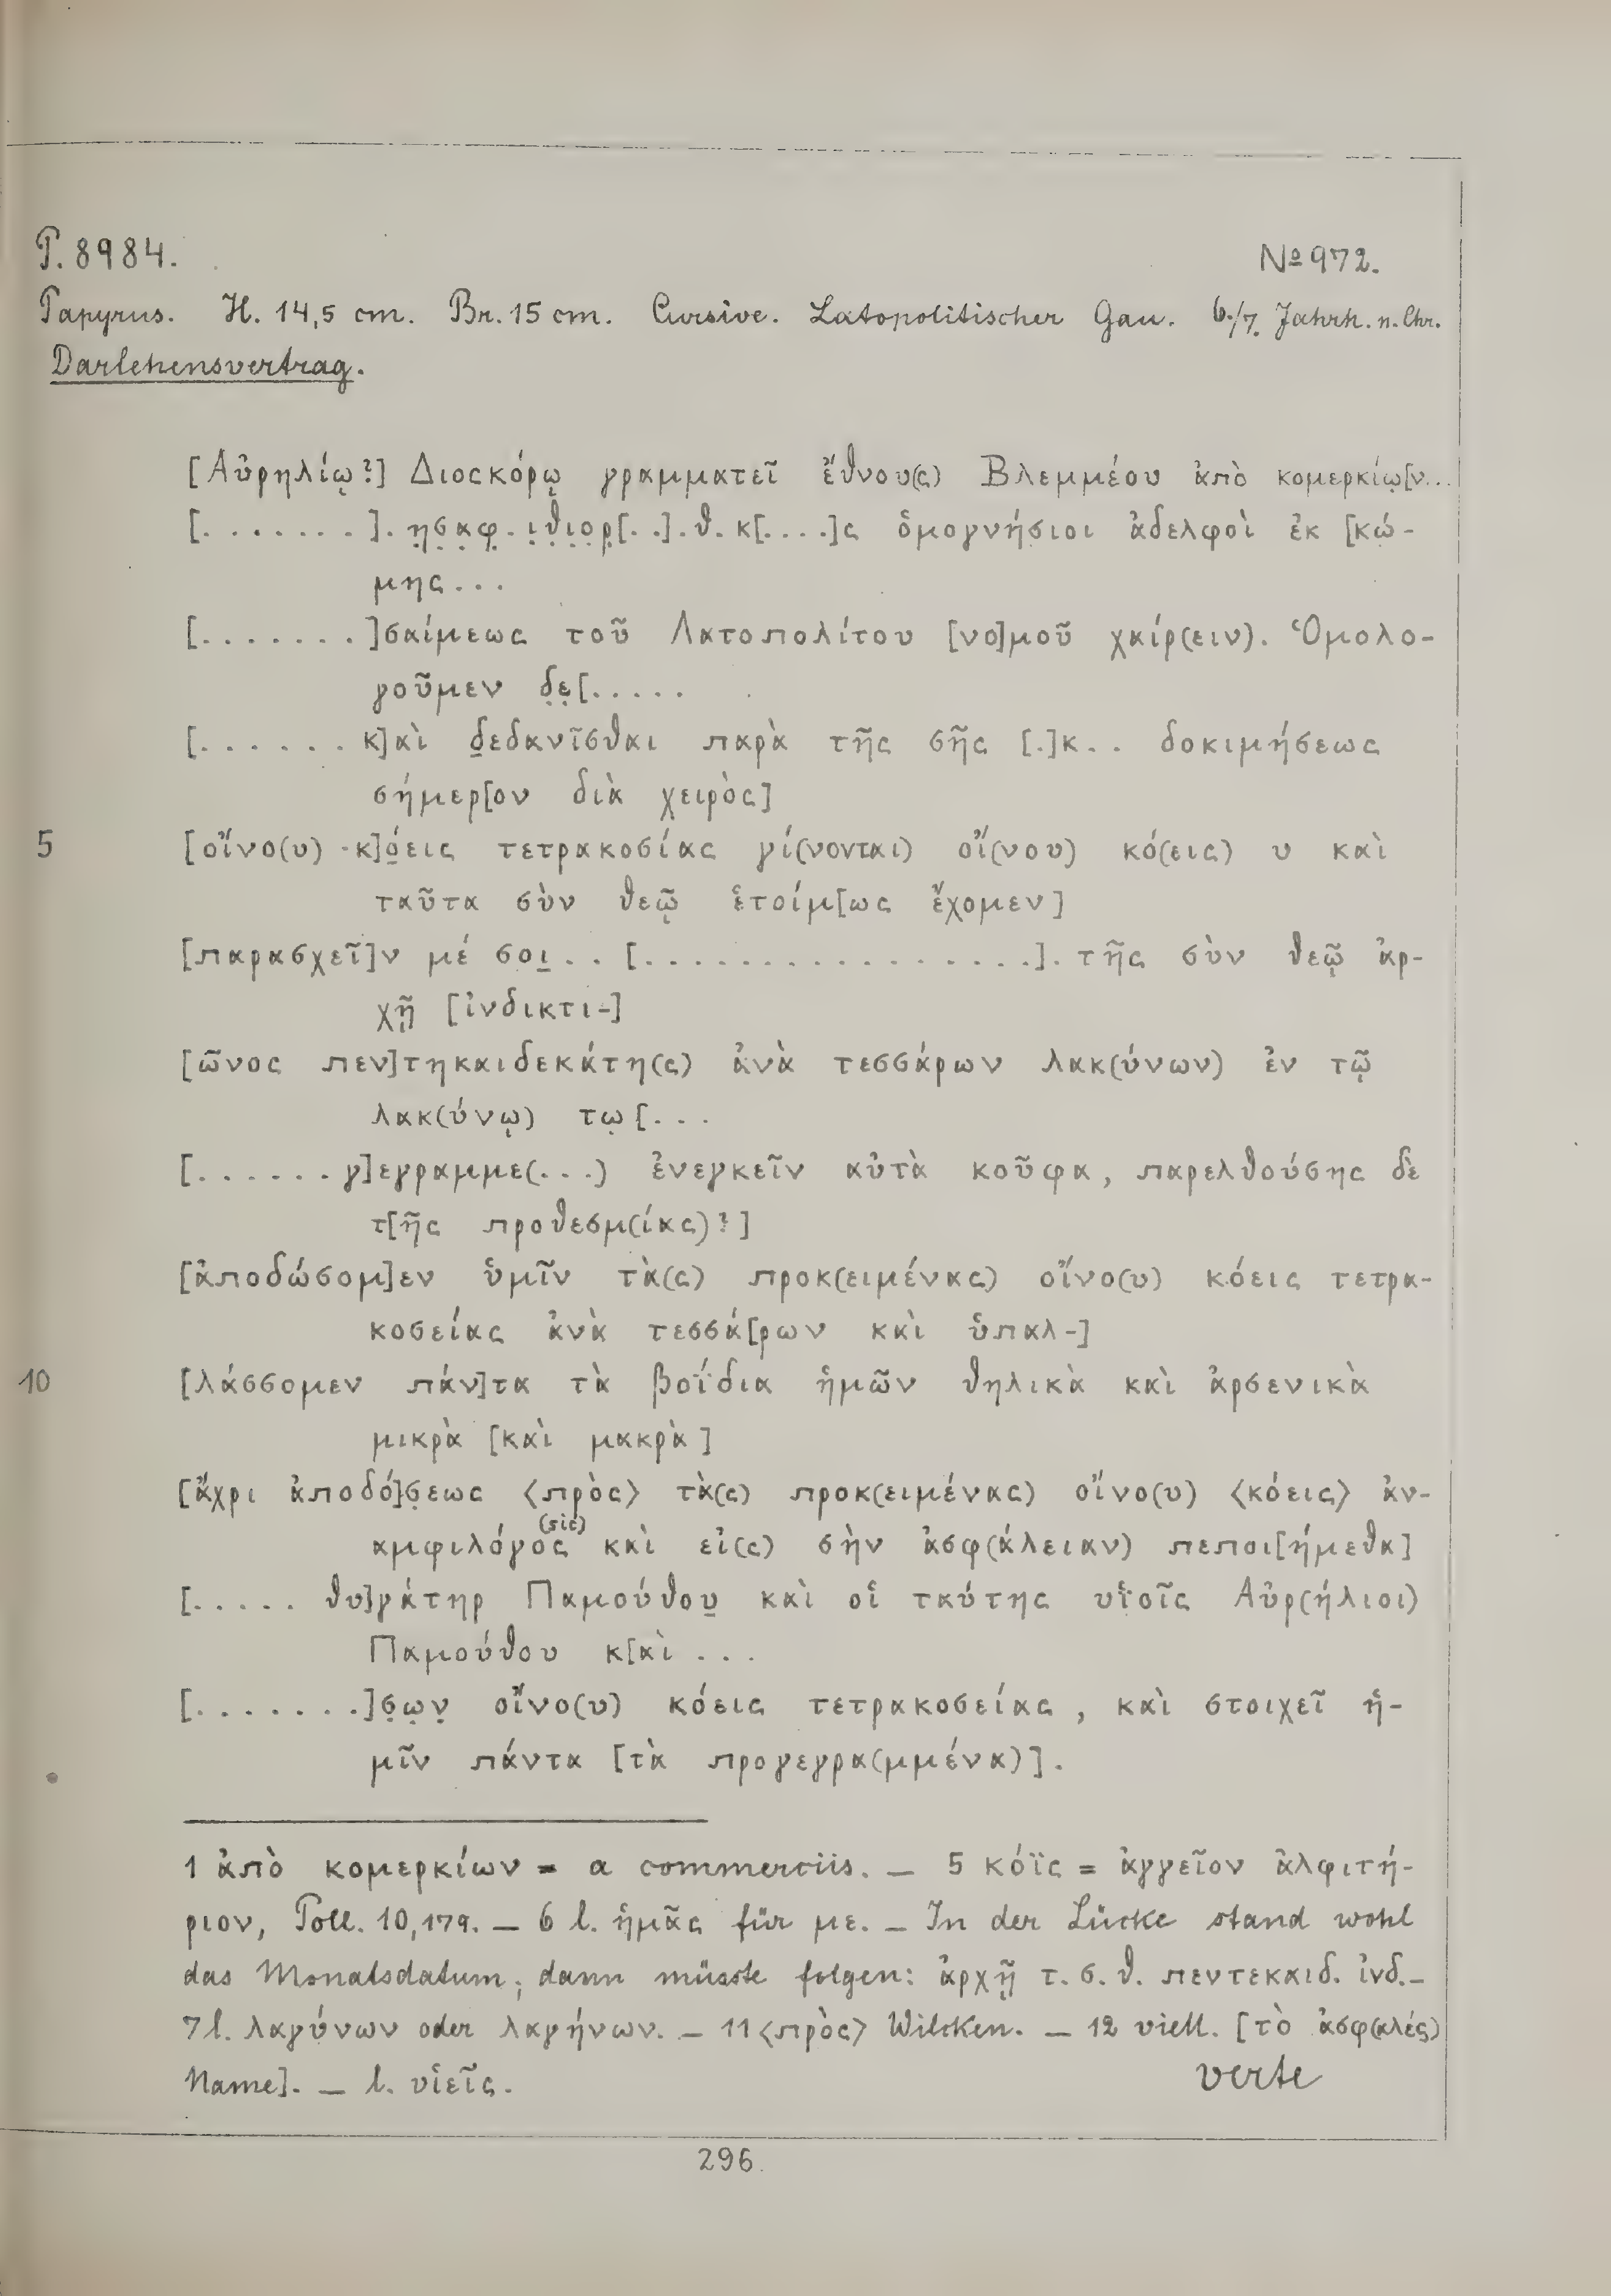 P. 8984. № 972.
Papyrus. H. 14,5 cm. Br. 15 cm. Cursive. Latopolitischer Gau. 6./7. Jahrh. n. Chr.
Darlehensvertrag.
[Αὐρηλίῳ?] Διοσκόρῳ γραμματεῖ ἔθνου(ς) Βλεμμέου ἀπὸ κομερκίω[ν...
[.......]. η̣σ̣α̣φ̣.ι̣θ̣ι̣ο̣ρ̣[..].θ.κ[....]ς ὁμογνήσιοι ἀδελφοὶ ἐκ [κώ-
μης...
[.......]σαίμεως τοῦ Λατοπολίτου [νο]μοῦ χαίρ(ειν). Ὁμολο-
γοῦμεν δ̣ε̣[.....
[...... κ]αὶ δ̣εδανῖσθαι παρὰ τῆς σῆς [.]κ.. δοκιμήσεως
σήμερ[ον διὰ χειρὸς]
5 [οἴνο(υ) κ]ό̣εις τετρακοσίας γί(νονται) οἴ(νου) κό(εις) υ καὶ
ταῦτα σὺν θεῷ ἑτοίμ[ως ἔχομεν]
[παρασχεῖ]ν μέ σοι̣.. [.................]. τῆς σὺν θεῷ ἀρ-
χῇ [ἰνδικτι-]
[ῶνος πεν]τηκαιδεκάτη(ς) ἀνὰ τεσσάρων λακ(ύνων) ἐν τῷ
λακ(ύνῳ) τῳ[...
[...... γ]εγραμμε(...) ἐνεγκεῖν αὐτὰ κοῦφα, παρελθούσης δὲ
τ[ῆς προθεσμ(ίας)?]
[ἀποδώσομ]εν ὑμῖν τὰ(ς) προκ(ειμένας) οἴνο(υ) κόεις τετρα-
κοσείας ἀνὰ τεσσά[ρων καὶ ὑπαλ-]
10 [λάσσομεν πάν]τα τὰ βοΐδια ἡμῶν θηλικὰ καὶ ἀρσενικὰ
μικρὰ [καὶ μακρὰ]
[ἄχρι ἀποδό]σ̣εως ⟨πρὸς⟩ τὰ(ς) προκ(ειμένας) οἴνο(υ) ⟨κόεις⟩ ἀν-
αμφιλόγος (sic) καὶ εἰ(ς) σὴν ἀσφ(άλειαν) πεποι[ήμεθα]
[..... θυ]γάτηρ Παμούθου̣ καὶ οἱ ταύτης υἱοῖς Αὐρ(ήλιοι)
Παμούθου κ[αὶ ...
[........]σ̣ω̣ν̣ οἴνο(υ) κόεις τετρακοσείας, καὶ στοιχεῖ ἡ-
μῖν πάντα [τὰ προγεγρα(μμένα)].
1 ἀπὸ κομερκίων = a commerciis. — 5 κόϊς = ἀγγεῖον ἀλφιτή-
ριον, Poll. 10,179. — 6 l. ἡμᾶς für με. — In der Lücke stand wohl
das Monatsdatum; dann müsste folgen: ἀρχῇ τ. σ. θ. πεντεκαιδ. ἰνδ. —
7 l. λαγύνων oder λαγήνων. — 11 ⟨πρὸς⟩ Wilcken. — 12 viell. [τὸ ἀσφ(αλές)
Name]. — l. υἱεῖς. verte
296.